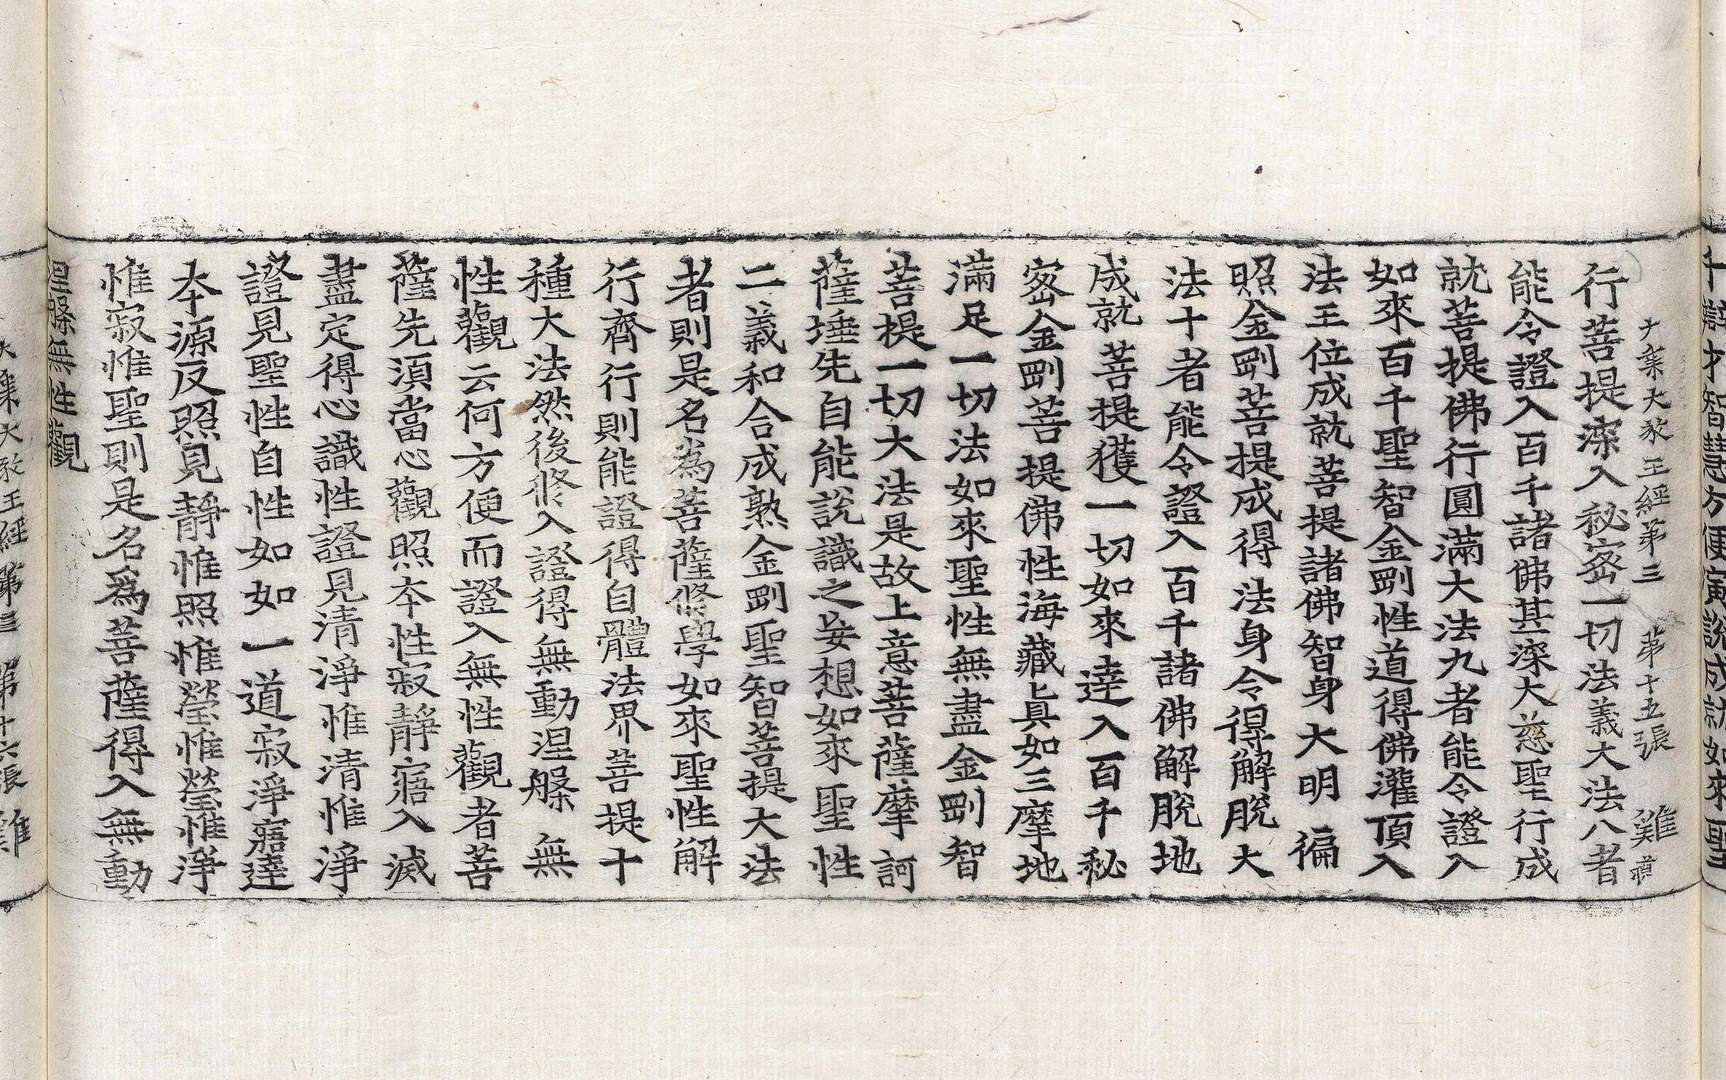 十辯才智慧方便演說成就如來聖
大集大教王經第三 第十五張 難
行菩提深入秘密一切法義大法八者
能令證入百千諸佛甚深大慈聖行成
就菩提佛行圓滿大法九者能令證入
如來百千聖智金剛性道得佛灌頂入
法王位成就菩提諸佛智身大明徧
照金剛菩提成得法身令得解脫大
法十者能令證入百千諸佛解脫地
成就菩提獲一切如來達入百千秘
密金剛菩提佛性海藏眞如三摩地
滿足一切法如來聖性無盡金剛智
菩提一切大法是故上意菩薩摩訶
薩埵先自能說識之妄想如來聖性
二義和合成熟金剛聖智菩提大法
者則是名為菩薩修學如來聖性解
行齊行則能證得自體法界菩提十
種大法然後修入證得無動涅槃無
性觀云何方便而證入無性觀者菩
薩先須當心觀照本性寂靜寤入滅
盡定得心識性證見清淨惟清惟淨
證見聖性自性如如一道寂淨寤達
本源反照見靜惟照惟瑩惟瑩惟淨
惟寂惟聖則是名爲菩薩得入無動
涅槃無性觀
大集大教王經第三 第十六張 難